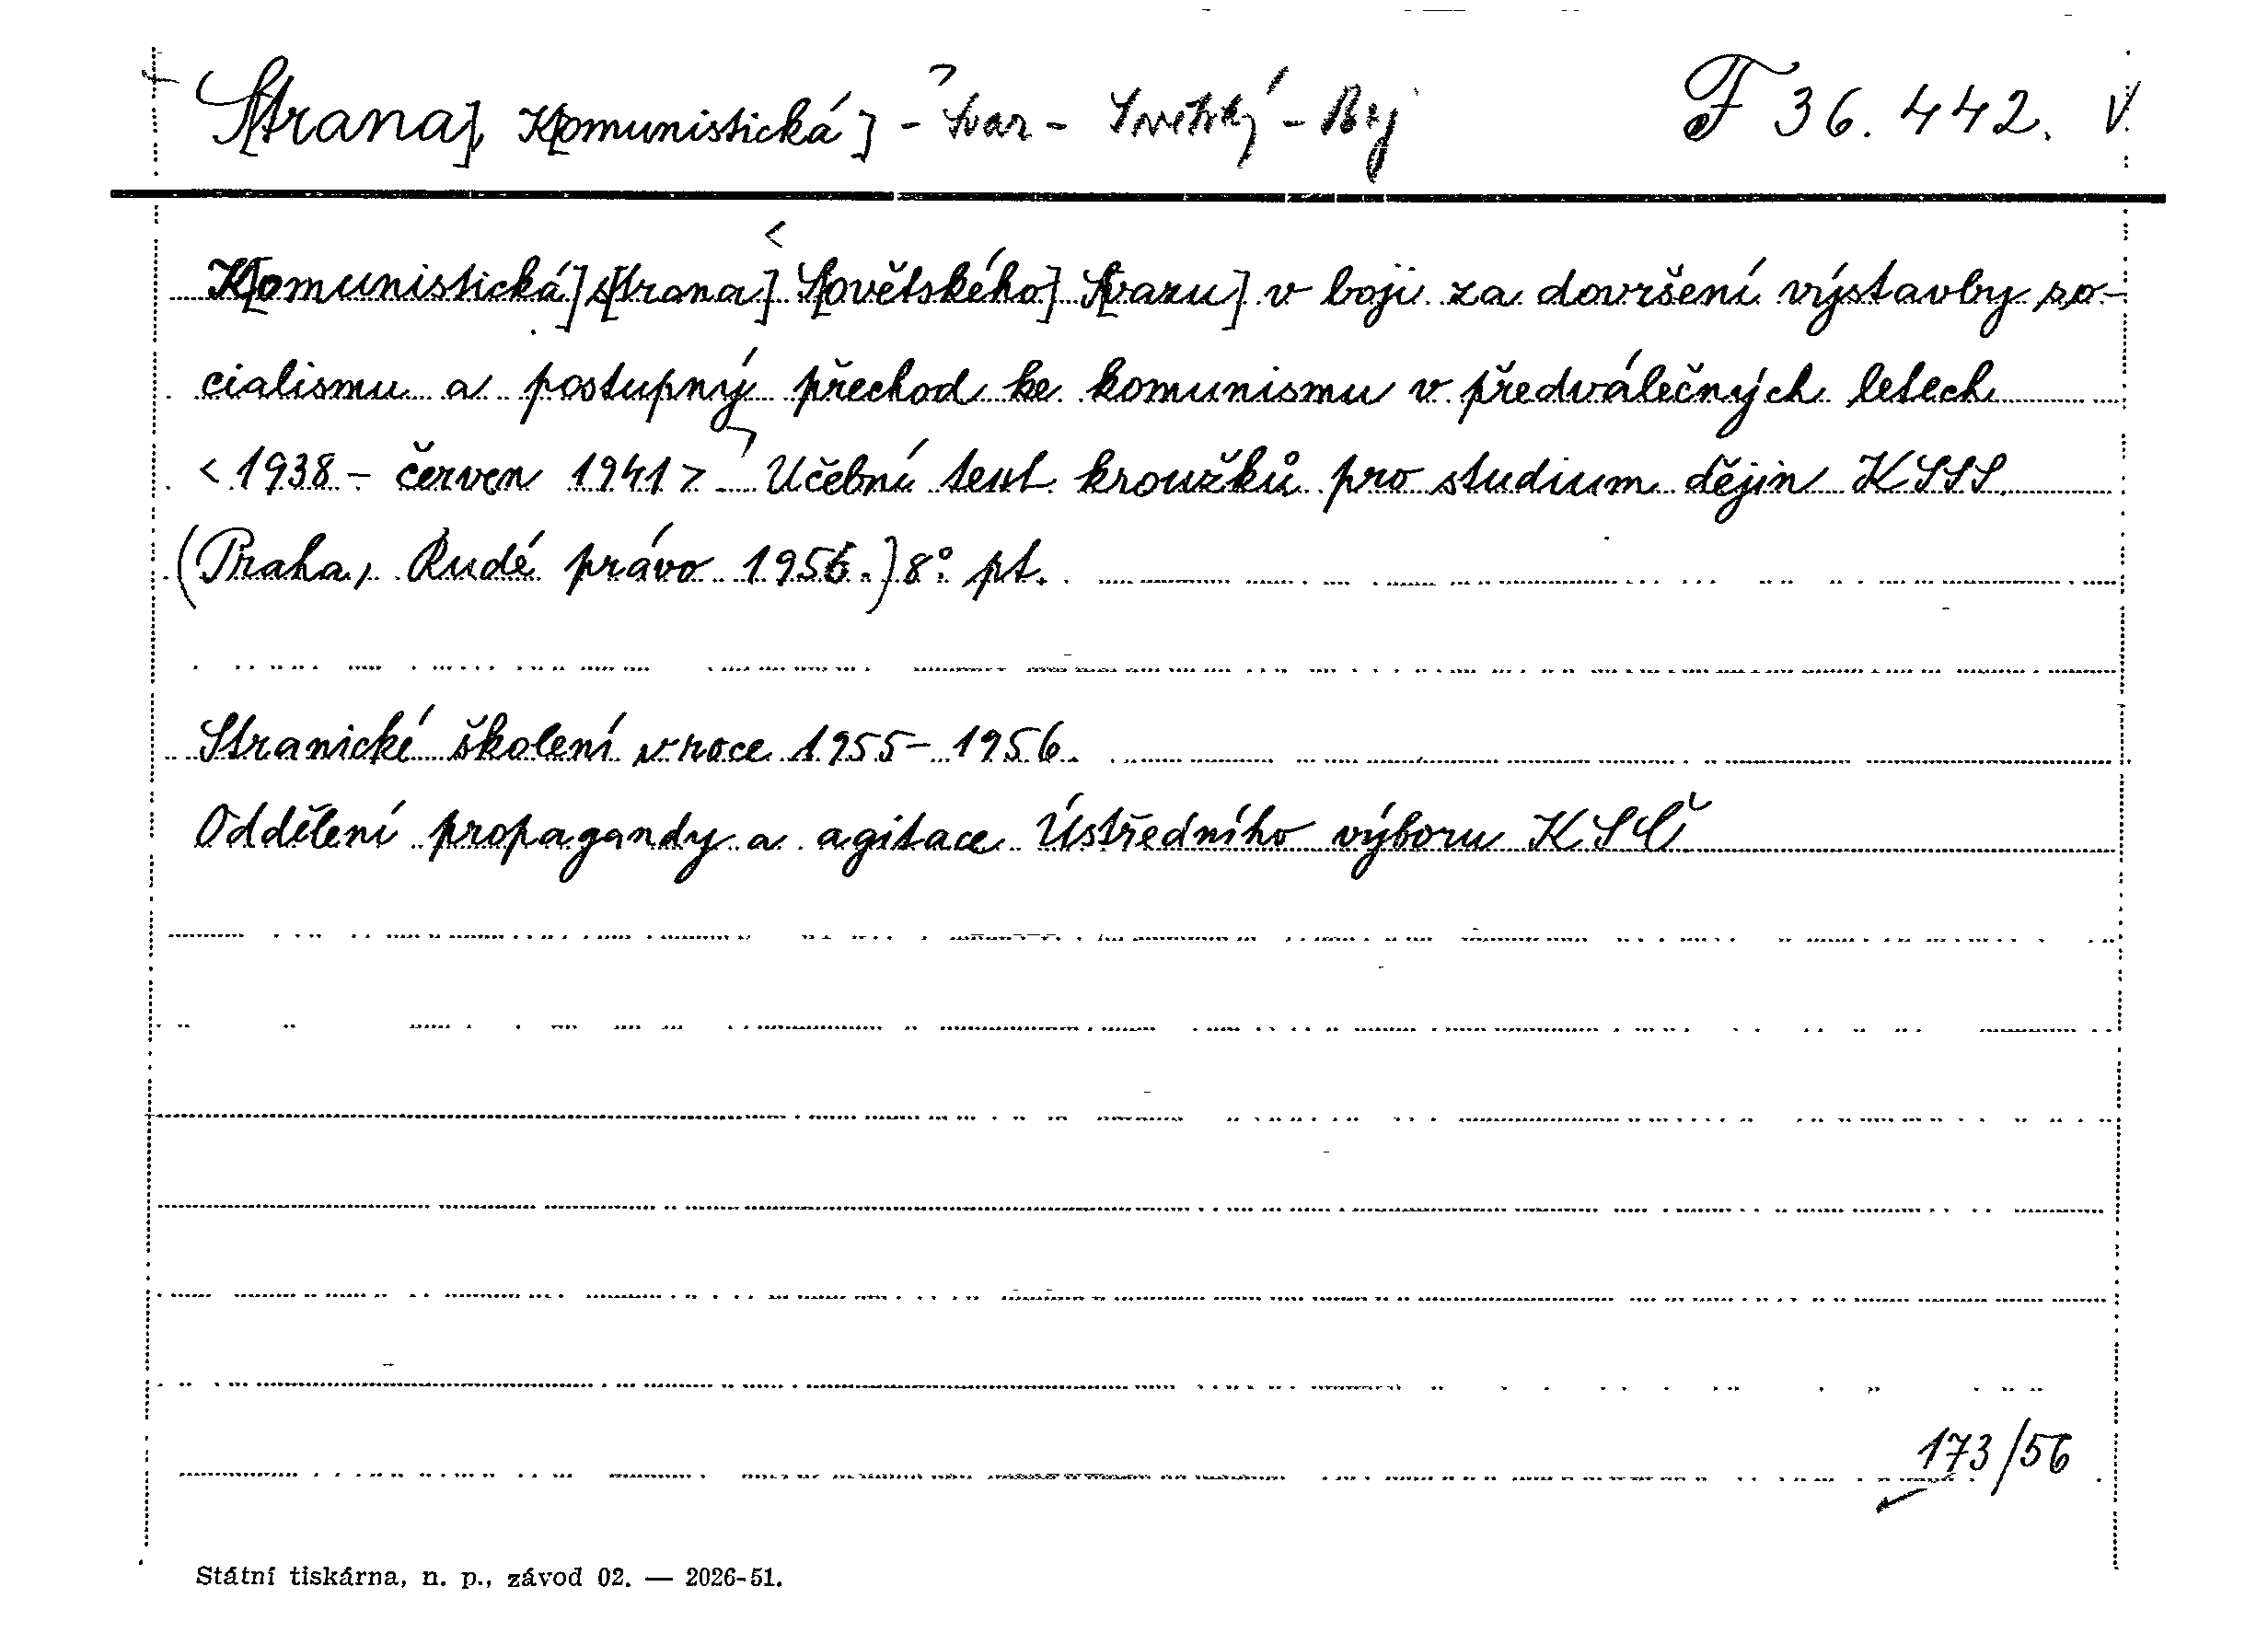 S[trana], K[omunistická] - Svaz - Sovětský - Boj F 36.442. V.
K[omunistická] s[trana] S[ovětského] S[vazu] v boji za dovršení výstavby so-
cialismu a postupný přechod ke komunismu v předválečných letech
<1938 - červen 1941> Učební text kroužků pro studium dějin KSSS.
(Praha, Rudé právo 1956.) 8° pt.
Stranické školení v roce 1955 - 1956.
Oddělení propagandy a agitace Ústředního výboru KSČ
173/56
Státní tiskárna, n. p., závod 02. — 2026-51.